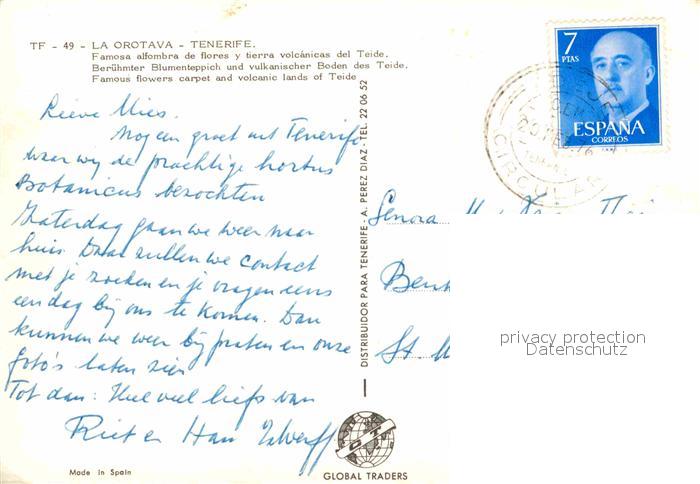 TF - 49 - LA OROTAVA - TENERIFE.
Famosa alfombra de flores y tierra volcánicas del Teide.
Berühmter Blumenteppich und vulkanischer Boden des Teide.
Famous flowers carpet and volcanic lands of Teide
Lieve Mies.
Nog een groet uit Tenerife.
waar wij de prachtige hortus
Botanicus bezochten
Zaterdag gaan we weer naar
huis. Daar zullen we contact
met je zoeken en je vragen eens
een dag bij ons te komen. Dan
kunnen we weer bij praten en onze
foto's laten zien
Tot dan: Heel veel liefs van
Riet en Han
Made in Spain
DISTRIBUIDOR PARA TENERIFE - A. PEREZ DIAZ - TEL. 22 06 52
GLOBAL TRADERS
7
PTAS
ESPAÑA
CORREOS
CIRCULAR
Senora
St.
privacy protection
Datenschutz